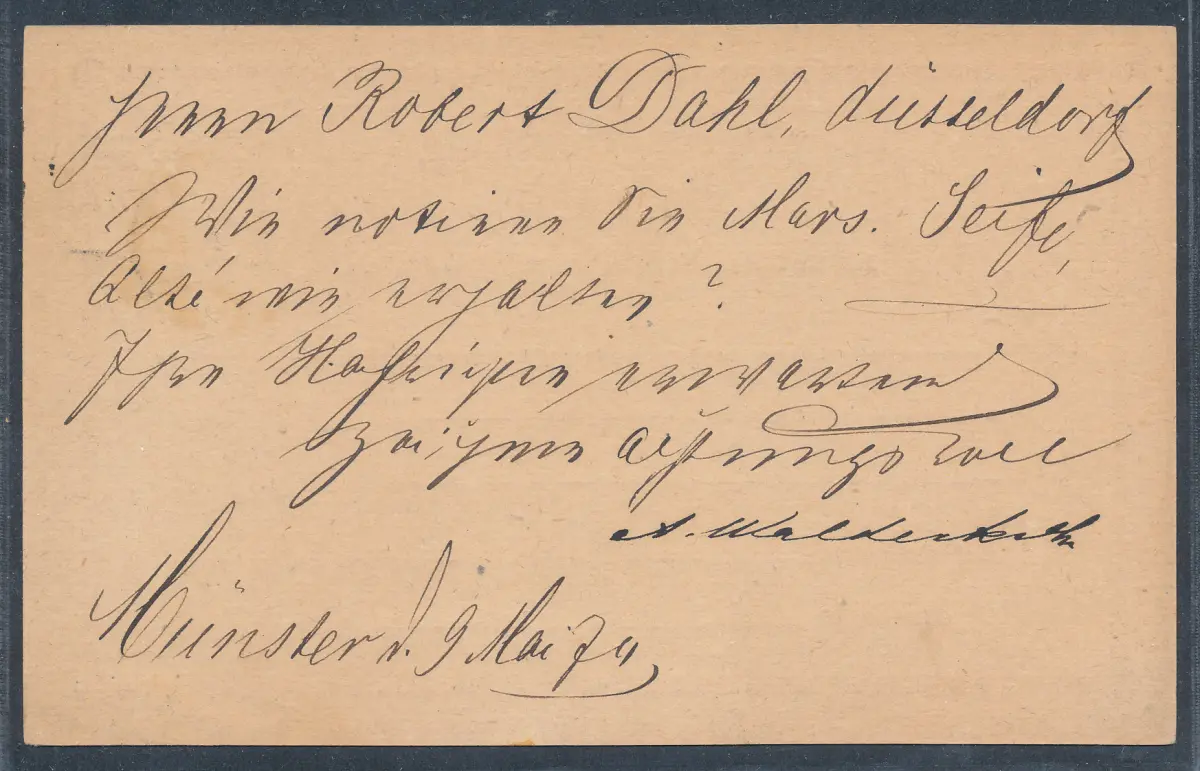 Herrn Robert Dahl, Düsseldorf
Wie notiren Sie Mars. Seife,
alté wie erhalten?
Ihre Nachricht erwartend
zeichne achtungsvoll
A.
Münster d. 9 Mai